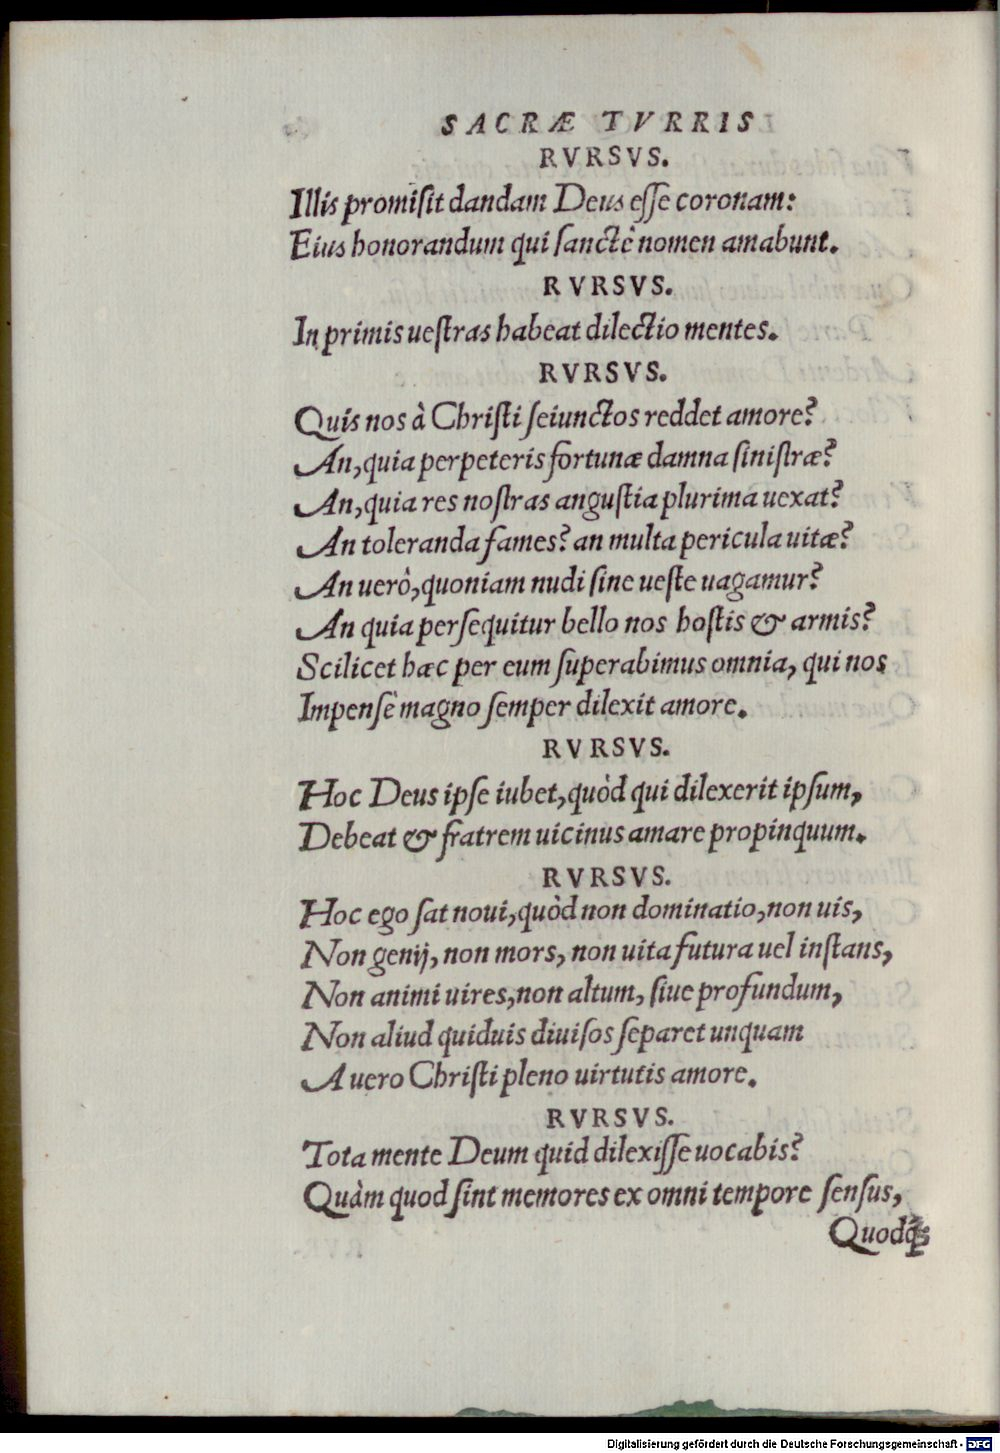 SACRÆ TVRRIS
RVRSVS.
Illis promiſit dandam Deus eſſe coronam:
Eius honorandum qui ſanctè nomen amabunt.
RVRSVS.
In primis ueſtras habeat dilectio mentes.
RVRSVS.
Quis nos à Chriſti ſeiunctos reddet amore?
An, quia perpeteris fortunæ damna ſiniſtræ?
An, quia res noſtras anguſtia plurima uexat?
An toleranda fames? an multa pericula uitæ?
An uerò, quoniam nudi ſine ueſte uagamur?
An quia perſequitur bello nos hoſtis & armis?
Scilicet hæc per eum ſuperabimus omnia, qui nos
Impenſè magno ſemper dilexit amore.
RVRSVS.
Hoc Deus ipſe iubet, quòd qui dilexerit ipſum,
Debeat & fratrem uicinus amare propinquum.
RVRSVS.
Hoc ego ſat noui, quòd non dominatio, non uis,
Non genij, non mors, non uita futura uel inſtans,
Non animi uires, non altum, ſiue profundum,
Non aliud quiduis diuiſos ſeparet unquam
A uero Chriſti pleno uirtutis amore.
RVRSVS.
Tota mente Deum quid dilexiſſe uocabis?
Quàm quod ſint memores ex omni tempore ſenſus,
Quodq;
Digitalisierung gefördert durch die Deutsche Forschungsgemeinschaft - DFG